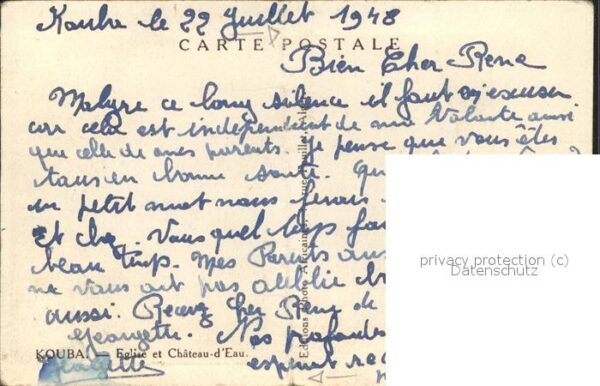 Kouba le 22 Juillet 1948
CARTE POSTALE
Bien Cher René
Malgre ce long silence il faut m'excuser
car cela est independent de ma Volonte aussi
que celle de mes parents. Je pense que vous êtes
tous en bonne santé.
un petit mot nous ferais
Et chez Vous quel temps
beau temp. Mes Parents
ne vous ont pas oublié
aussi. Recevez Cher René de
Georgette. Nos profondes
KOUBA. — Eglise et Château-d'Eau.
Georgette
Editions Photo Africaines
privacy protection (c)
Datenschutz